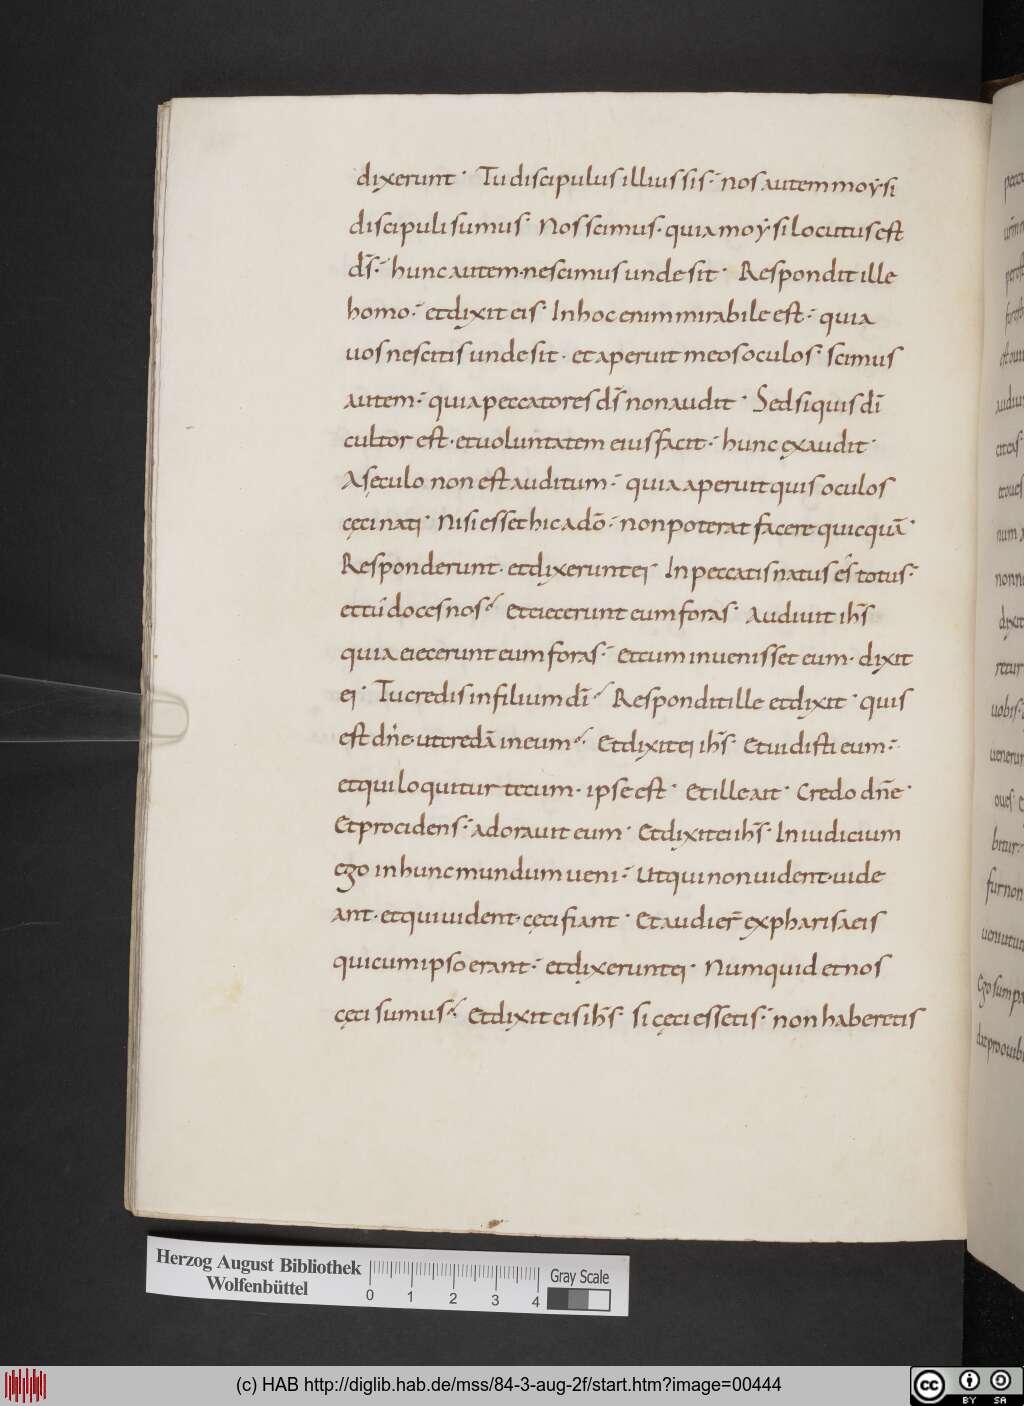 dixerunt · Tu discipulus illius sis :· nos autem moẏsi
discipuli sumus · Nos scimus · quia moẏsi locutus est
dſ̄ :· hunc autem · nescimus unde sit · Respondit ille
homo :· et dixit eis · In hoc enim mirabile est :· quia
uos nescitis unde sit · et aperuit meos oculos · scimus
autem :· quia peccatores dſ̄ non audit · Sed si quis dī
cultor est · et uoluntatem eius facit :· hunc exaudit ·
A sęculo non est auditum :· quia aperuit quis oculos
cęci nati · Nisi esset hic a dō :· non poterat facere quicquā ·
Responderunt · et dixerunt ei · In peccatis natus és totus :·
et tú doces nos :· Et eiecerunt eum foras · Audiuit ihſ̄
quia eiecerunt eum foras :· et cum inuenisset eum · dixit
ei · Tu credis in filium dī :· Respondit ille et dixit · quis
est dn̄e · ut credā in eum :· Et dixit ei ihſ̄ · Et uidisti eum :·
et qui loquitur tecum · ipse est · Et ille ait · Credo dn̄e ·
Et procidens :· adorauit eum · Et dixit ei ihſ̄ · In iudicium
ego in hunc mundum ueni :· Ut qui non uident · uide
ant · et qui uident · cęci fiant · Et audier̄ ex pharisaeis
qui cum ipso erant :· et dixerunt ei · Numquid et nos
cęci sumus :· Et dixit eis ihſ̄ · si cęci essetis :· non haberetis
Herzog August Bibliothek
Wolfenbüttel
0 1 2 3 4
Gray Scale
(c) HAB http://diglib.hab.de/mss/84-3-aug-2f/start.htm?image=00444
cc BY SA